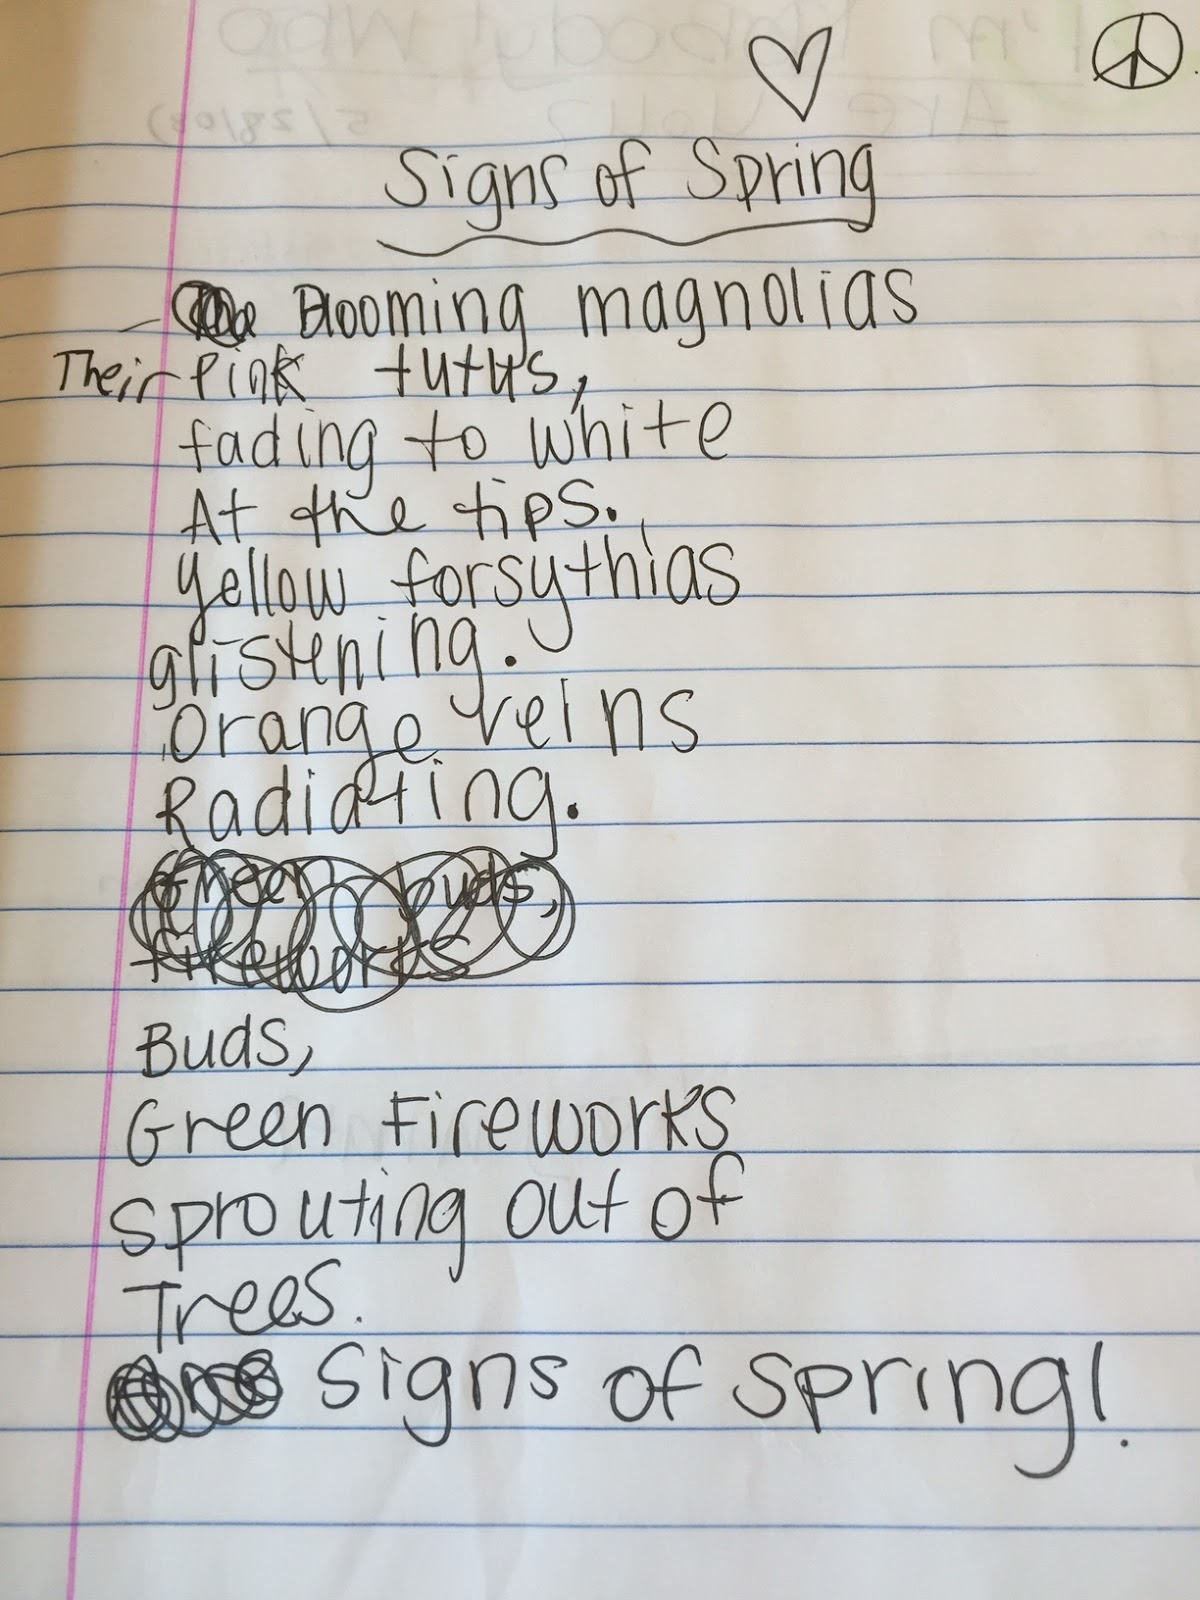 Signs of Spring
Blooming magnolias
Their Pink tutus,
fading to white
At the tips.
Yellow forsythias
glistening.
Orange veins
Radiating.
Green buds,
fireworks
Buds,
Green Fireworks
sprouting out of
Trees.
Signs of spring!